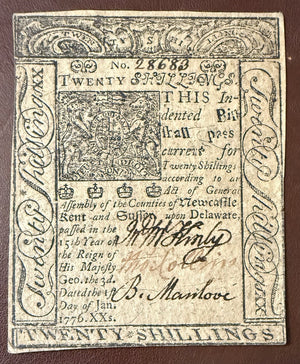 No. 28683
TWENTY SHILLINGS.
THIS In-
dented Bill
shall pass
current for
Twenty Shillings
according to an
Act of General
Assembly of the Counties of Newcastle
Kent and Sussex upon Delaware,
passed in the
15th Year of
the Reign of
His Majesty
Geo. the 3d.
Dated the 1st
Day of Jan.
1776. XXs.
B. Manlove
Twenty Shillings XX
Twenty Shillings XX
TWENTY SHILLINGS